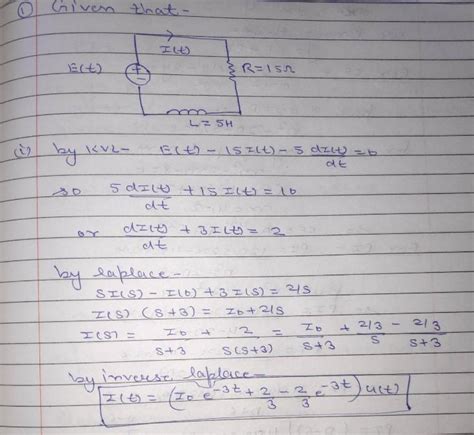 ① Given that -
I(t)
E(t)
+
-
R=15Ω
L=5H
(i) by KVL- E(t) - 15 I(t) - 5 dI(t)/dt = 0
so 5 dI(t)/dt + 15 I(t) = 10
or dI(t)/dt + 3I(t) = 2
by laplace -
SI(s) - I(0) + 3I(s) = 2/s
I(s) (s+3) = I0 + 2/s
I(s) = I0/s+3 + 2/s(s+3) = I0/s+3 + 2/3/s - 2/3/s+3
by inverse laplace -
I(t) = (I0 e^-3t + 2/3 - 2/3 e^-3t) u(t)